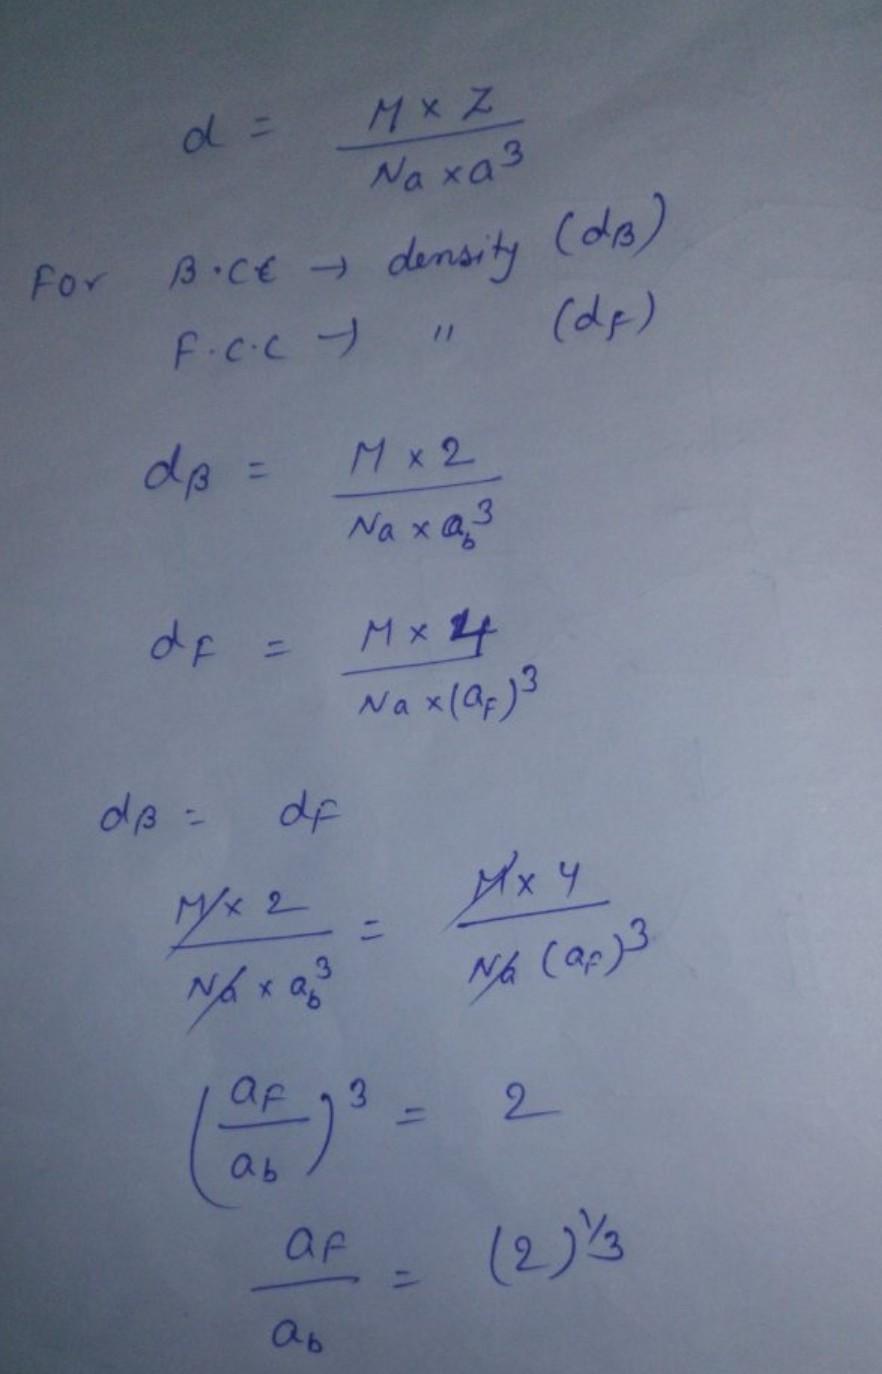 d = M × Z / Na × a³
For B.CC → density (dB)
F.C.C → " (dF)
dB = M × 2 / Na × ab³
dF = M × 4 / Na × (aF)³
dB = dF
M × 2 / Na × ab³ = M × 4 / Na (aF)³
(aF / ab)³ = 2
aF / ab = (2)^1/3